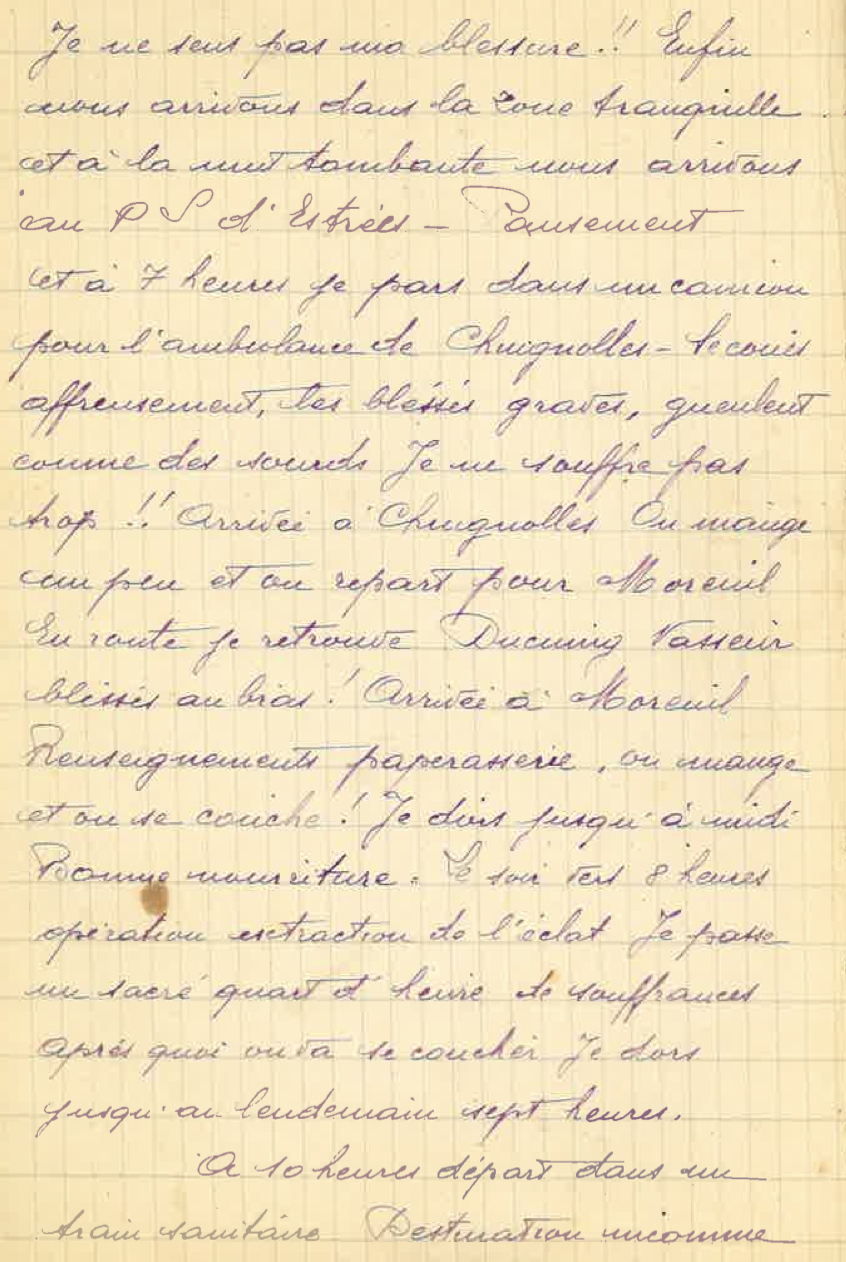 Je ne sens pas ma blessure !! Enfin
nous arrivons dans la zone tranquille.
et à la nuit tombante nous arrivons
au P S d'Estrées - Pansement
et à 7 heures je pars dans un camion
pour l'ambulance de Chuignolles - Secoués
affreusement, les bléssés graves, gueulent
comme des sourds Je ne souffre pas
trop !! Arrivée à Chuignolles On mange
un peu et on repart pour Moreuil
En route je retrouve Ducuing Vasseur
blessés au bras ! Arrivée à Moreuil
Renseignements paperasserie, on mange
et on se couche ! Je dors jusqu'à midi
Bonne nourriture. Le soir vers 8 heures
opération extraction de l'éclat Je passe
un sacré quart d'heure de souffrances
après quoi on va se coucher Je dors
jusqu'au lendemain sept heures.
A 10 heures départ dans un
train sanitaire Destination inconnue